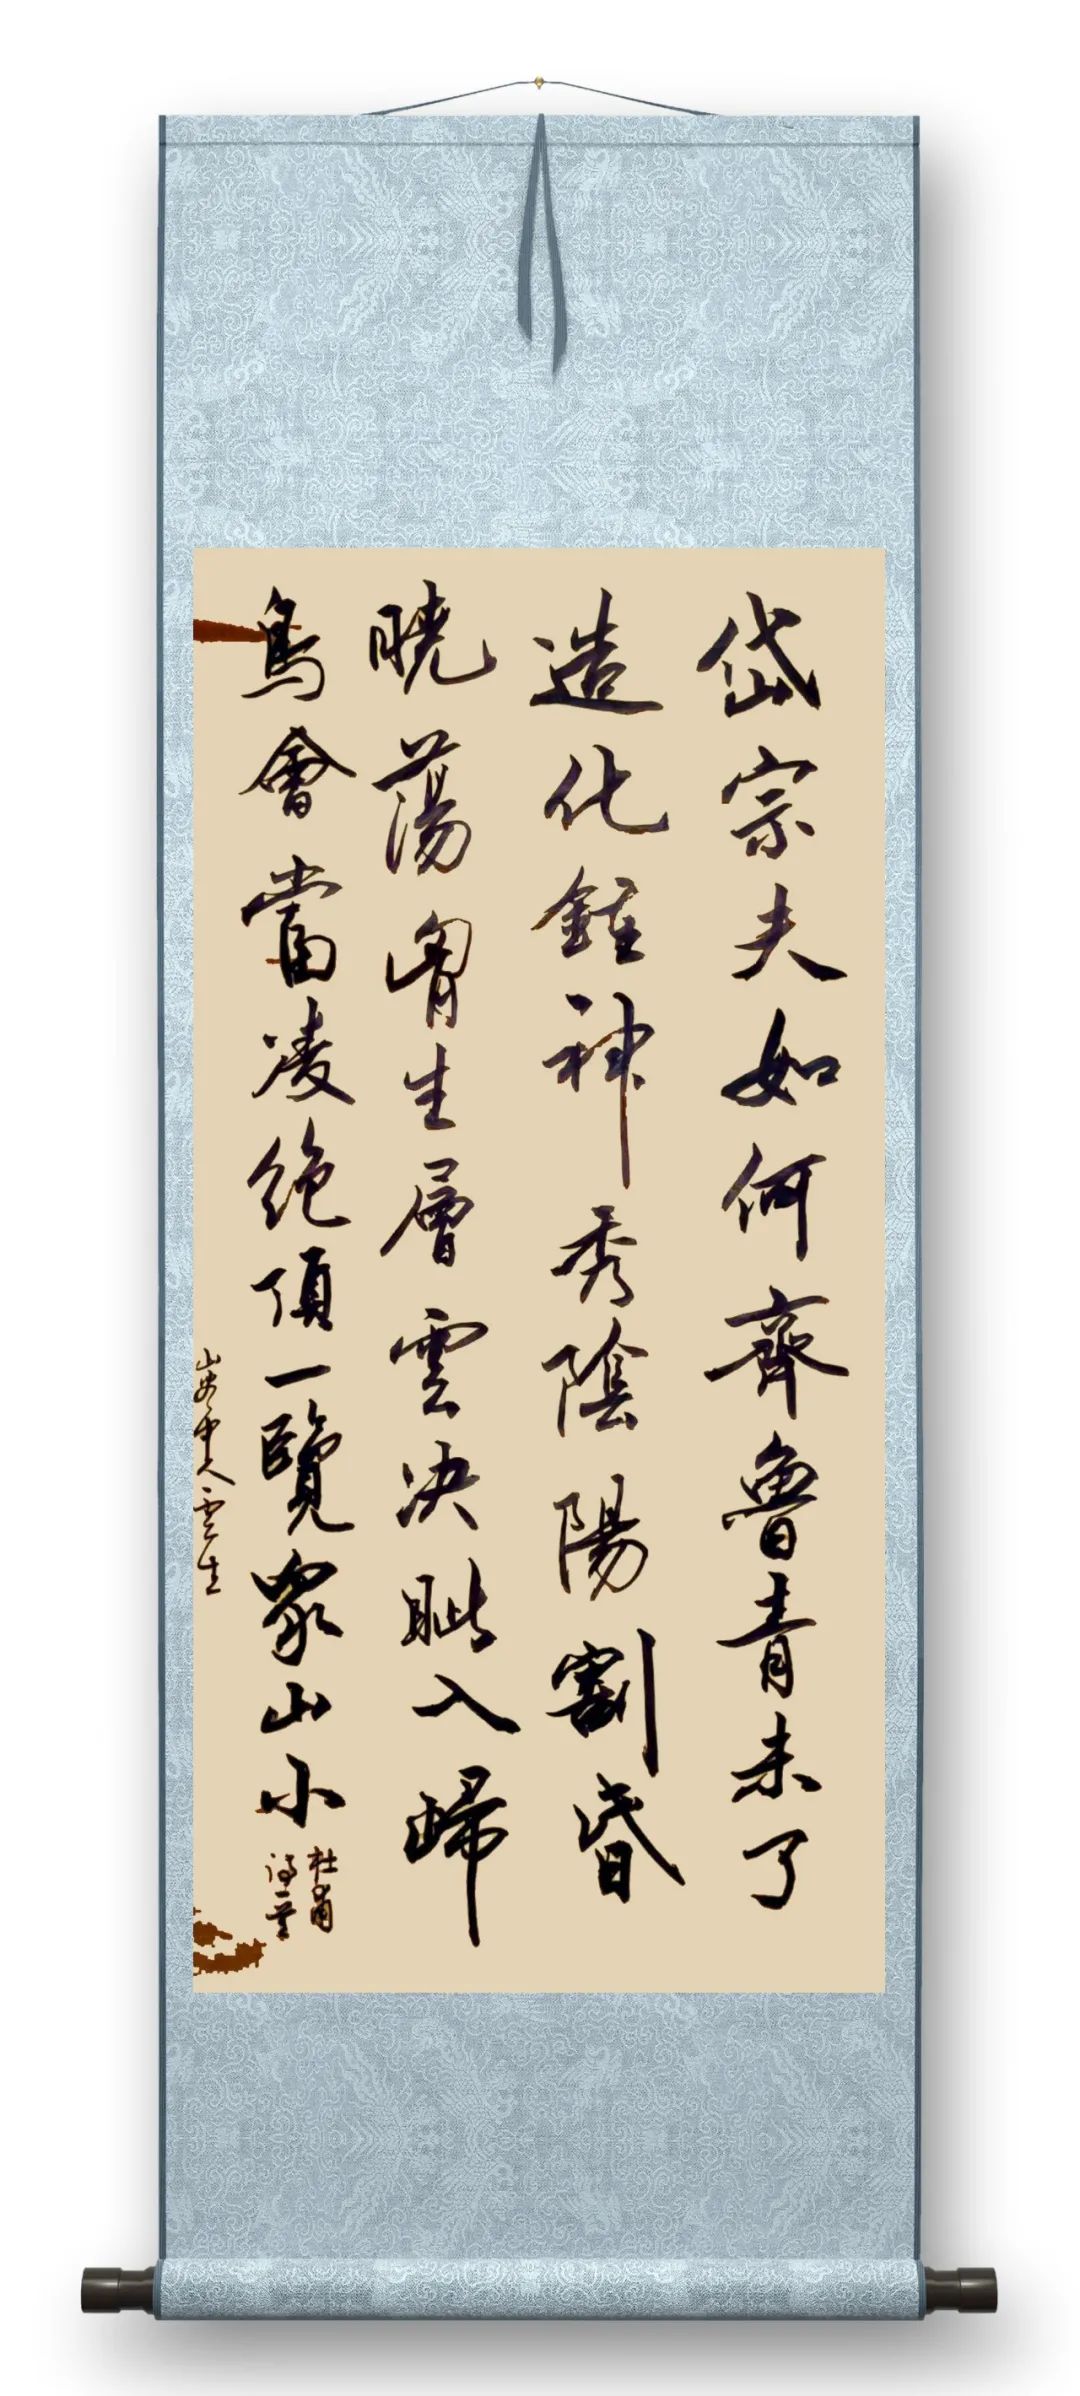 岱宗夫如何齊魯青未了
造化鍾神秀陰陽割昏
曉蕩胷生層雲决眦入歸
鳥會當凌絶頂一覽衆山小
杜甫
詩一首
雲生